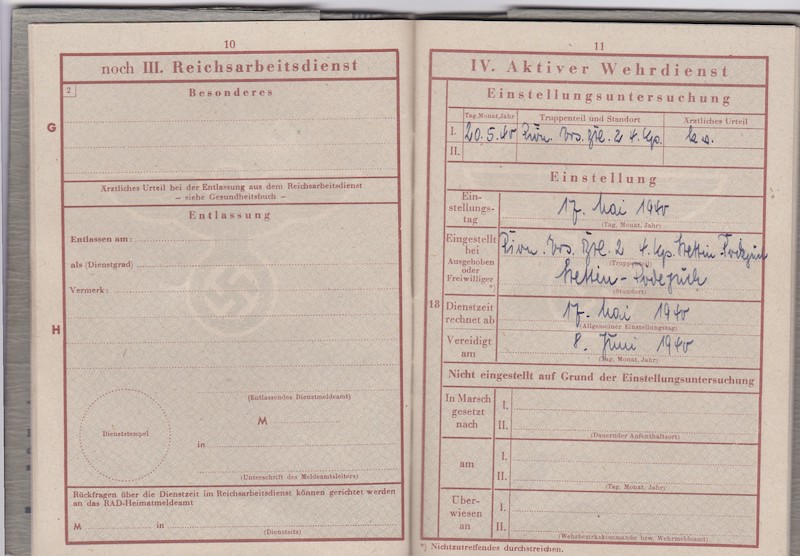 10
noch III. Reichsarbeitsdienst
2
Besonderes
G
Ärztliches Urteil bei der Entlassung aus dem Reichsarbeitsdienst
– siehe Gesundheitsbuch –
Entlassung
Entlassen am:
als (Dienstgrad)
Vermerk:
H
(Entlassendes Dienstmeldeamt)
M
Dienststempel
in
(Unterschrift des Meldeamtsleiters)
Rückfragen über die Dienstzeit im Reichsarbeitsdienst können gerichtet werden
an das RAD-Heimatmeldeamt
M in
(Dienstsitz)
11
IV. Aktiver Wehrdienst
Einstellungsuntersuchung
Tag, Monat, Jahr Truppenteil und Standort Ärztliches Urteil
I. 20.5.40 2 4. Kp.
II.
Einstellung
Ein-
stellungs-
tag
17. Mai 1940
(Tag, Monat, Jahr)
Eingestellt
bei
2 4. Kp. Stettin-Podejuch
Ausgehoben
oder
Freiwilliger
*)
(Truppenteil)
Stettin-Podejuch
(Standort)
18 Dienstzeit
rechnet ab
17. Mai 1940
(Allgemeiner Einstellungstag)
Vereidigt
am
8. Juni 1940
(Tag, Monat, Jahr)
Nicht eingestellt auf Grund der Einstellungsuntersuchung
In Marsch
gesetzt
nach
I.
II.
(Dauernder Aufenthaltsort)
am
I.
II.
(Tag, Monat, Jahr)
Über-
wiesen
an
I.
II.
(Wehrbezirkskommando bzw. Wehrmeldeamt)
*) Nichtzutreffendes durchstreichen.